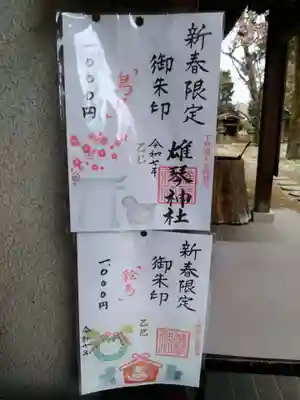 新春限定
御朱印
一、〇〇〇円
雄琴神社
令和七年
乙巳
新春限定
御朱印
「絵馬」
一、〇〇〇円
乙巳
令和七年